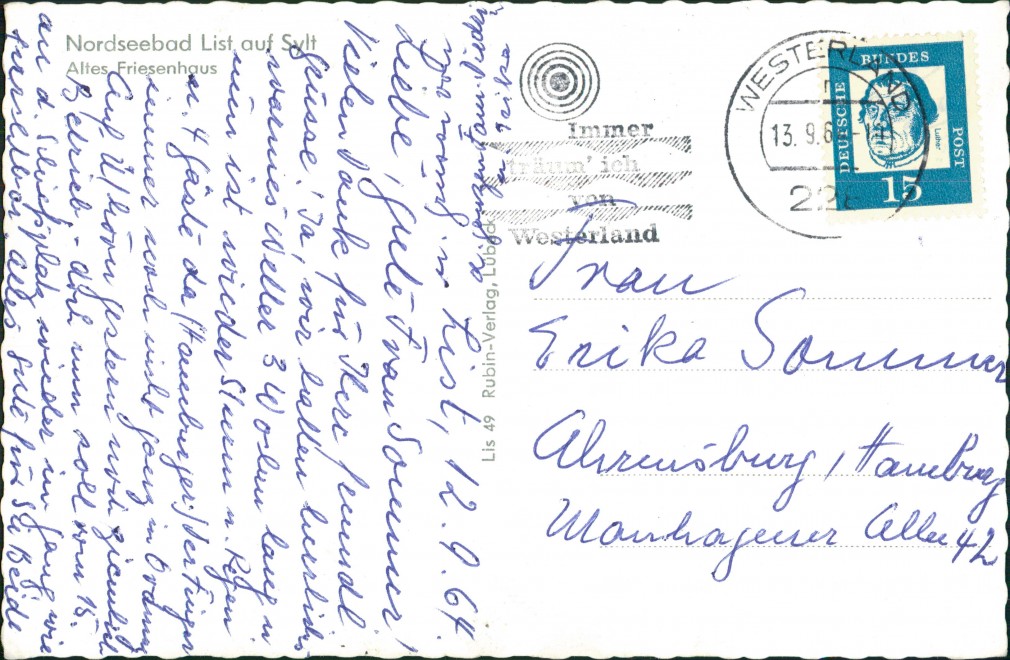 Nordseebad List auf Sylt
Altes Friesenhaus
Lis 49 Rubin-Verlag, Lübeck
WESTERLAND
13. 9. 6
Immer
träum' ich
von
Westerland
DEUTSCHE
BUNDES
POST
Luther
15
List, 12.9.64.
Liebe, gute Frau Sommer!
Vielen Dank für Ihre freundl.
Grüsse! Ja, wir hatten herrliches
warmes Wetter 3 Wochen lang u
nun ist wieder Sturm u. Regen
u. 4 Gäste da (Hamburger) der Finger
immer noch nicht ganz in Ordnung
Auf U/horn gestern noch ziemlich
Betrieb - doch nun soll vom 15.
an d. Schießplatz wieder in Gang wie
alles Gute für Sie Beide
Frau
Erika Sommer
Ahrensburg, Hamburg
Manhagener Allee 42